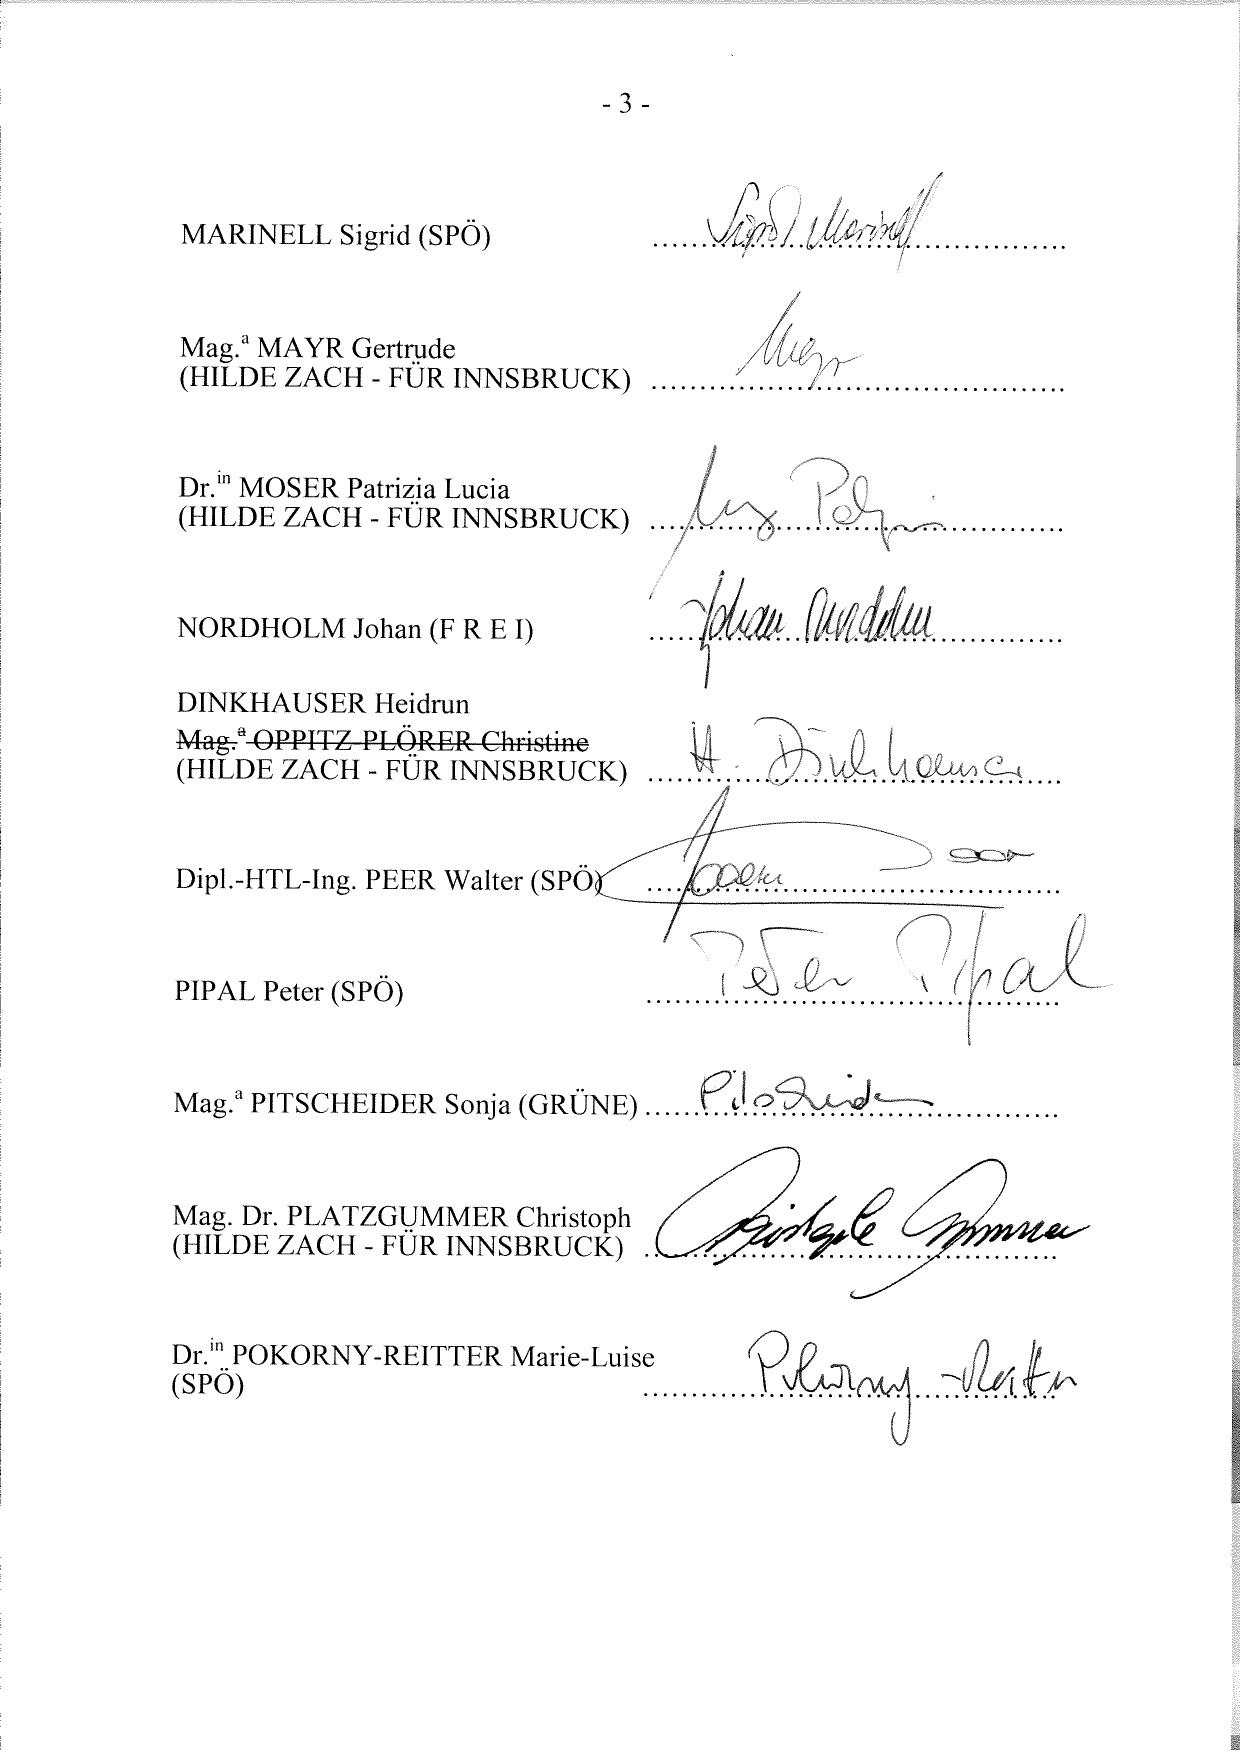 - 3 -
MARINELL Sigrid (SPÖ) ........ Sigrid Marinell ........
Mag.ª MAYR Gertrude
(HILDE ZACH - FÜR INNSBRUCK) ........ Mayr ........
Dr.ⁱⁿ MOSER Patrizia Lucia
(HILDE ZACH - FÜR INNSBRUCK) ........
NORDHOLM Johan (F R E I) ........ Johan Nordholm ........
DINKHAUSER Heidrun
Mag.ª OPPITZ-PLÖRER Christine
(HILDE ZACH - FÜR INNSBRUCK) ........ H. Dinkhauser ........
Dipl.-HTL-Ing. PEER Walter (SPÖ) ........ Walter Peer ........
PIPAL Peter (SPÖ) ........ Peter Pipal ........
Mag.ª PITSCHEIDER Sonja (GRÜNE) ........ Pitscheider ........
Mag. Dr. PLATZGUMMER Christoph
(HILDE ZACH - FÜR INNSBRUCK) ........
Dr.ⁱⁿ POKORNY-REITTER Marie-Luise
(SPÖ) ........ Pokorny-Reitter ........